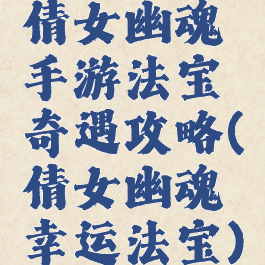 倩女幽魂
手游法宝
奇遇攻略(
倩女幽魂
幸运法宝)